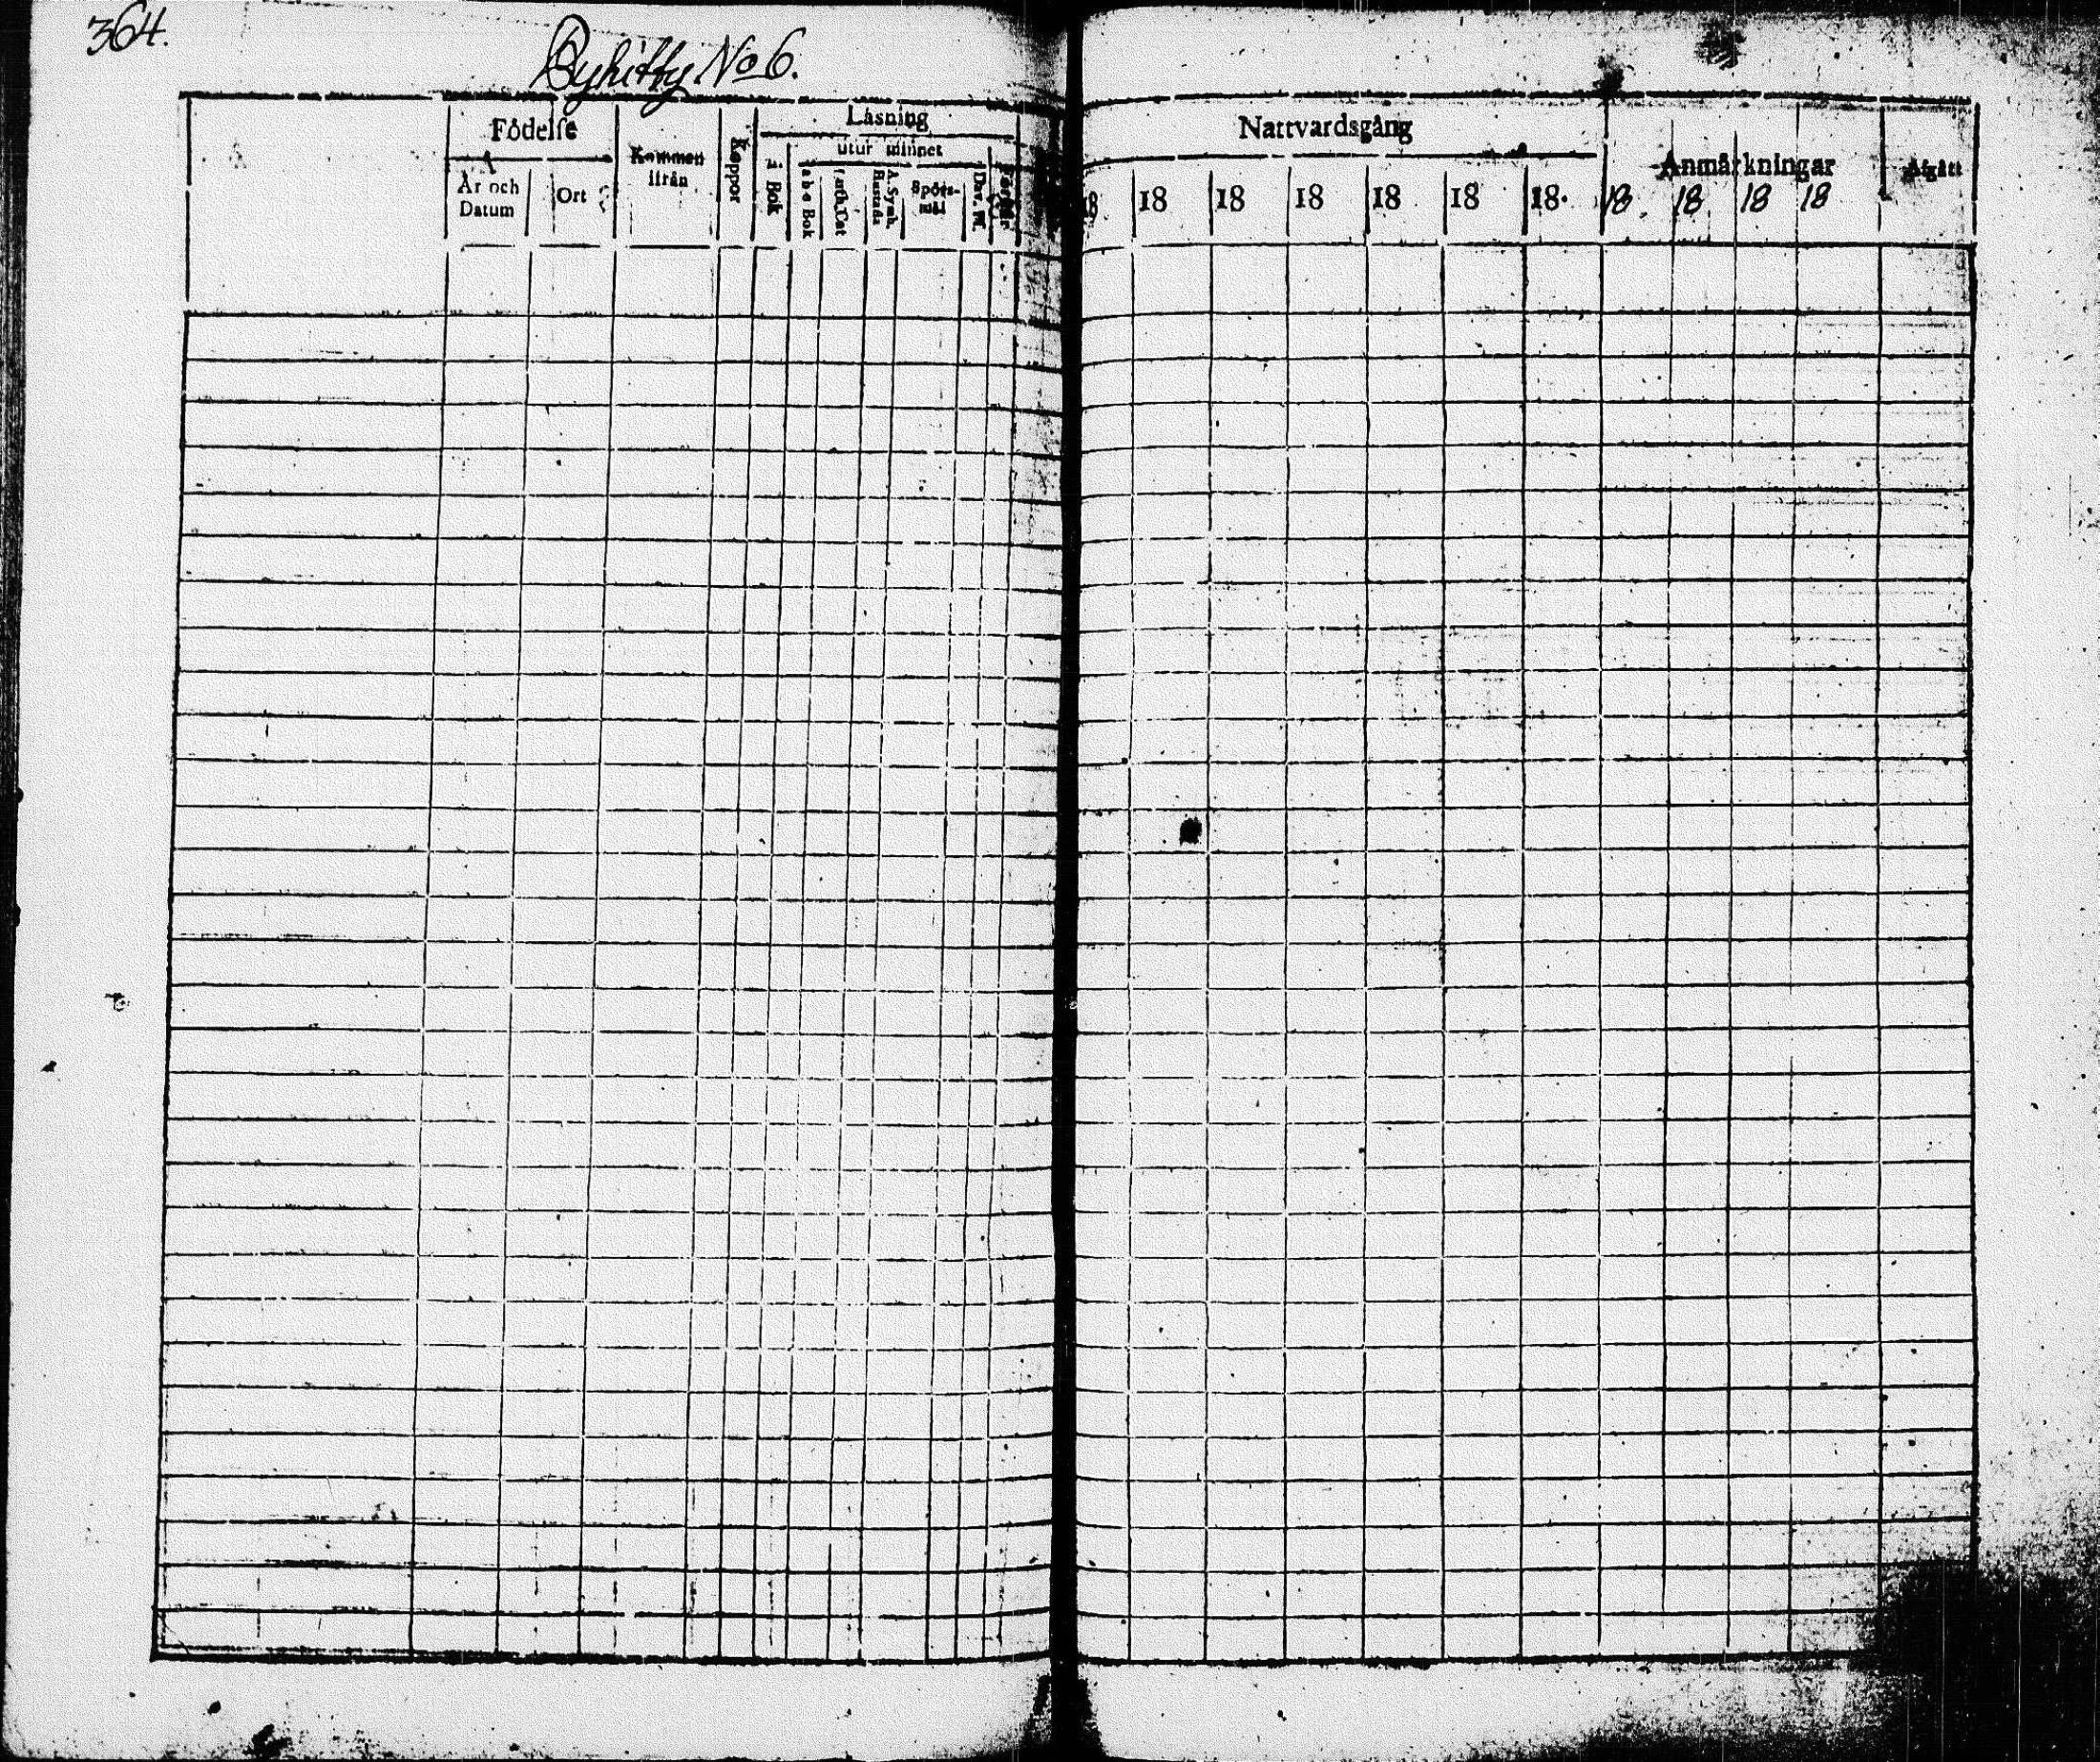 364.
Byhitby No 6.
Födelse
År och Datum
Ort
Kommen ifrån
Koppor
Läsning
utur minnet
i Bok
a b c Bok
Spörsmål
Dav. Ps.
Nattvardsgång
18 18 18 18 18 18 18. 18. 18 18 18
Anmärkningar
Afgått